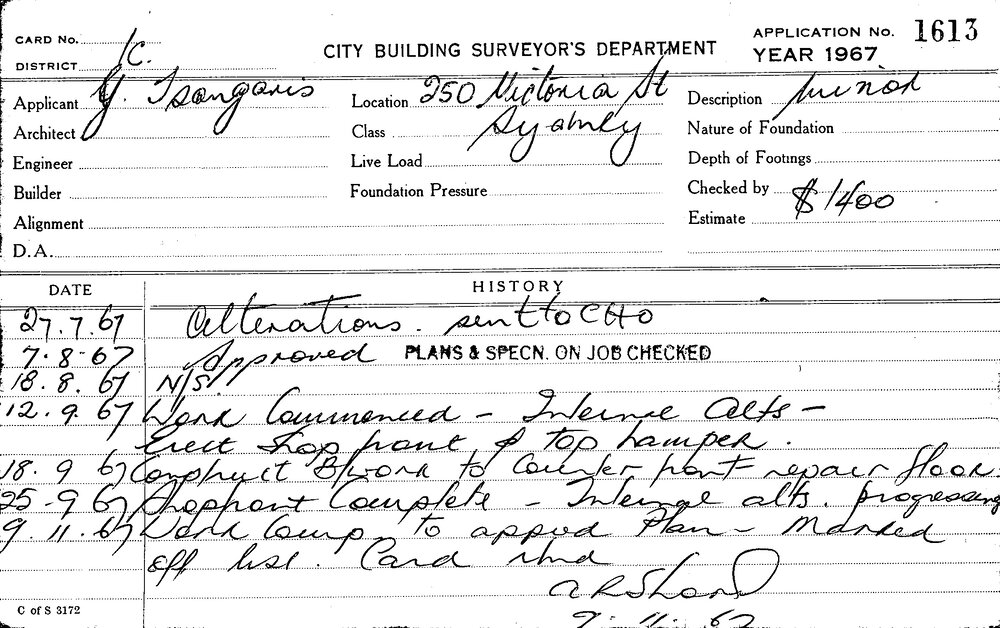 CARD No.
DISTRICT 1C.
CITY BUILDING SURVEYOR'S DEPARTMENT
APPLICATION No. 1613
YEAR 1967
Applicant G. Tsangaris
Location 250 Victoria St
Description Minor
Architect
Class Sydney
Nature of Foundation
Engineer
Live Load
Depth of Footings
Builder
Foundation Pressure
Checked by
Alignment
Estimate $1400
D.A.
DATE HISTORY
27.7.67 Alterations. sent to CHO
7.8.67 Approved PLANS & SPECN. ON JOB CHECKED
18.8.67 N/S
12.9.67 Work Commenced - Internal Alts -
Erect Shop front & top hamper.
18.9 67 Construct B/work to Counter front repair floor.
25-9 67 Shopfront Complete - Internal alts. progressing
9.11.67 Work Comp. to appvd Plan - Marked
off list. Card
9.11.67
C of S 3172